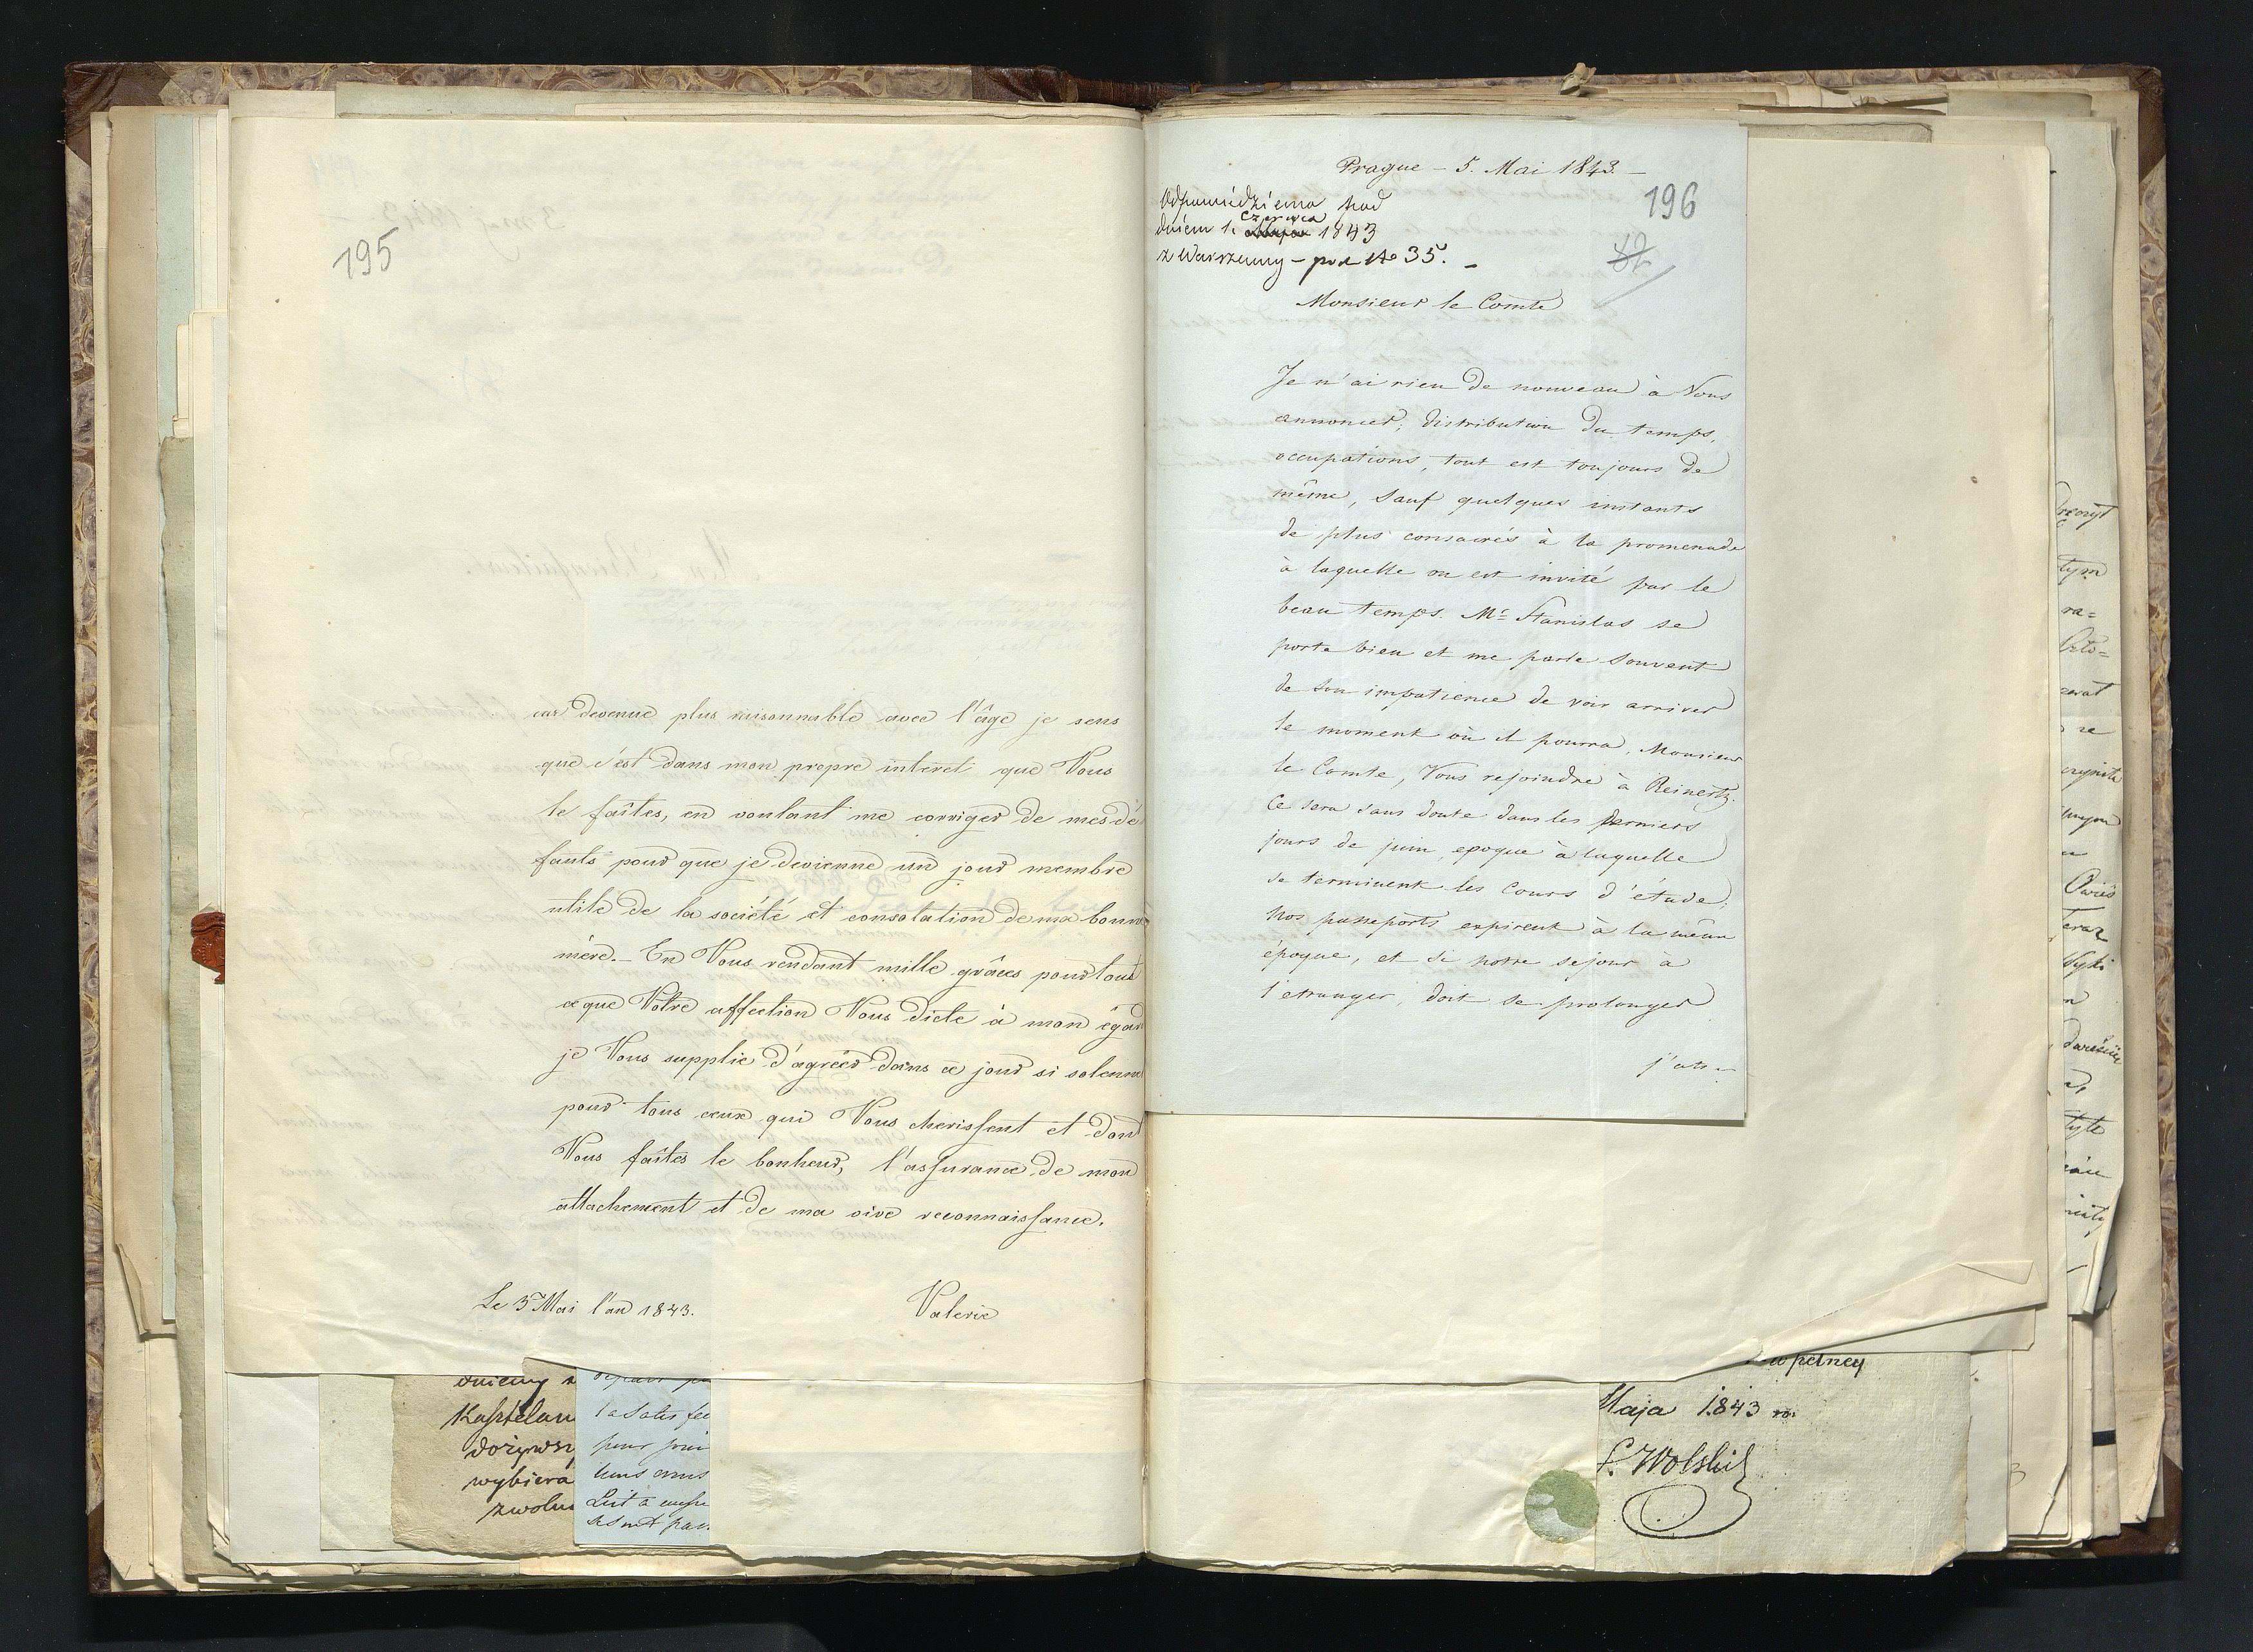 195
car devenue plus raisonnable avec l'âge je sens
que c'est dans mon propre intéret que Vous
le faîtes, en voulant me corriger de mes dé
fauts pour que je devienne un jour membre
utile de la société et consolation de ma bonne
mère. – En Vous rendant mille grâces pour tout
ce que Votre affection Vous dicte à mon égard
je Vous supplie d'agréer dans ce jour si solennel
pour tous ceux qui Vous cherissent et dont
Vous faîtes le bonheur, l'assurance de mon
attachement et de ma vive reconnaissance.
Le 3 Mai l'an 1843.
Valerie
Kasztelan
wybiera
Prague – 5. Mai 1843. –
196
Odpowiedziano pod
Czerwca
dniem 1. Maja 1843
z Warszawy – pod No 35. –
Monsieur le Comte
Je n'ai rien de nouveau à Vous
annoncer, distribution du temps,
occupations, tout est toujours de
même, sauf quelques instants
de plus consacrés à la promenade
à laquelle on est invité par le
beau temps. Mr Stanislas se
porte bien et me parle souvent
de son impatience de voir arriver
le moment où il pourra, Monsieur
le Comte, Vous rejoindre à Reinertz.
Ce sera sans doute dans les derniers
jours de juin, epoque à laquelle
se terminent les cours d'étude;
Nos passeports expirent à la même
époque, et si notre sejour à
l'etranger, doit se prolonger
j'atten
zupełney
Maja 1843 ro:
Wolski